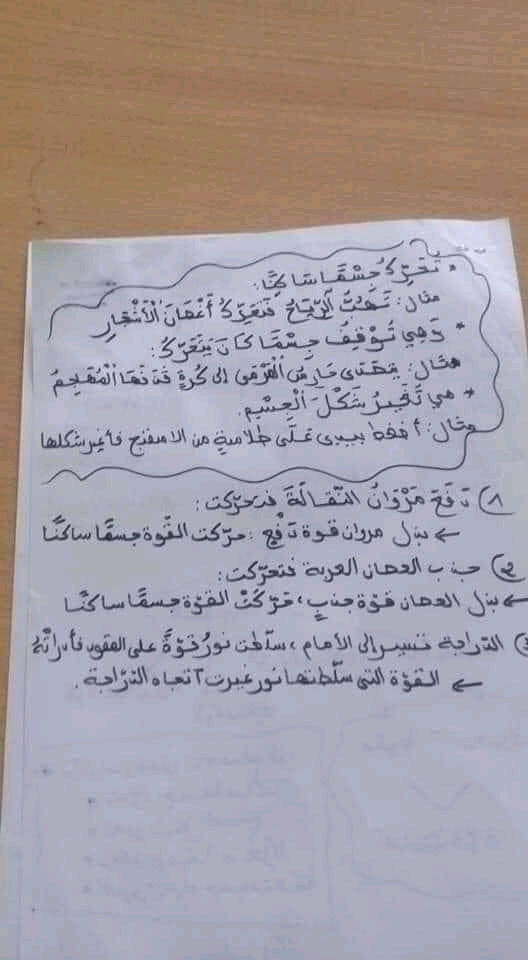 * تُحَرِّكُ جِسْمًا سَاكِنًا:
مثال: تَهُبُّ الرِّيَاحُ فَتُحَرِّكُ أَغْصَانَ الْأَشْجَارِ
* وَهِيَ تُوْقِفُ جِسْمًا كَانَ يَتَحَرَّكُ:
مثال: يتصدى حَارِسُ الْمَرْمَى إلى كُرَةٍ قَذَفَهَا الْمُهَاجِمُ
* هي تُغَيِّرُ شَكْلَ الْجِسْمِ.
مثال: أضغط بيدي عَلَى طلامة من الاسفنج فأغير شكلها
1) دَفَعَ مَرْوَانُ النَّقَّالَةَ فتحرّكت:
← بذل مروان قوة دَفْعٍ: حرّكت القُوة جسمًا ساكنًا
2) جذب الحصان العربة فتحرّكت:
← بذل الحصان قوّة جذبٍ، حرّكَتْ القوّة جسمًا ساكنًا
3) الدّراجة تسير إلى الأمام، سلّطت نورُ قوّةً على المقود فأدراتْهُ
← القوّة التي سلّطتها نور غيرت اتجاه الدّراجة.